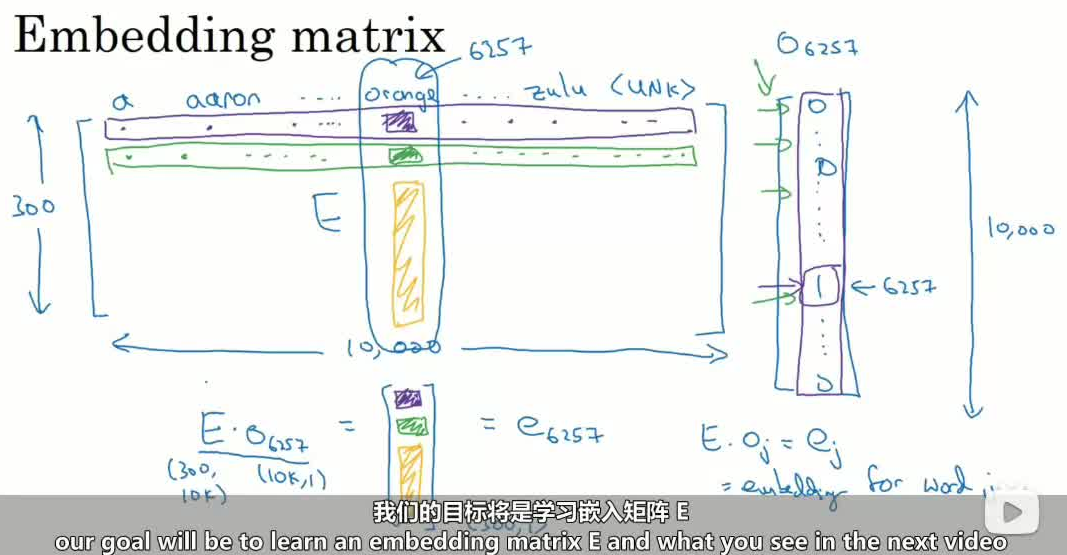 Embedding matrix
6257
O6257
a aaron ..... orange ..... zulu <UNK>
0
0
300
E
10,000
1
← 6257
10,000
0
E · O6257 = [ ] = e6257
(300, 10K) (10K, 1)
E · Oj = ej
= embedding for word j
我们的目标将是学习嵌入矩阵 E
our goal will be to learn an embedding matrix E and what you see in the next video